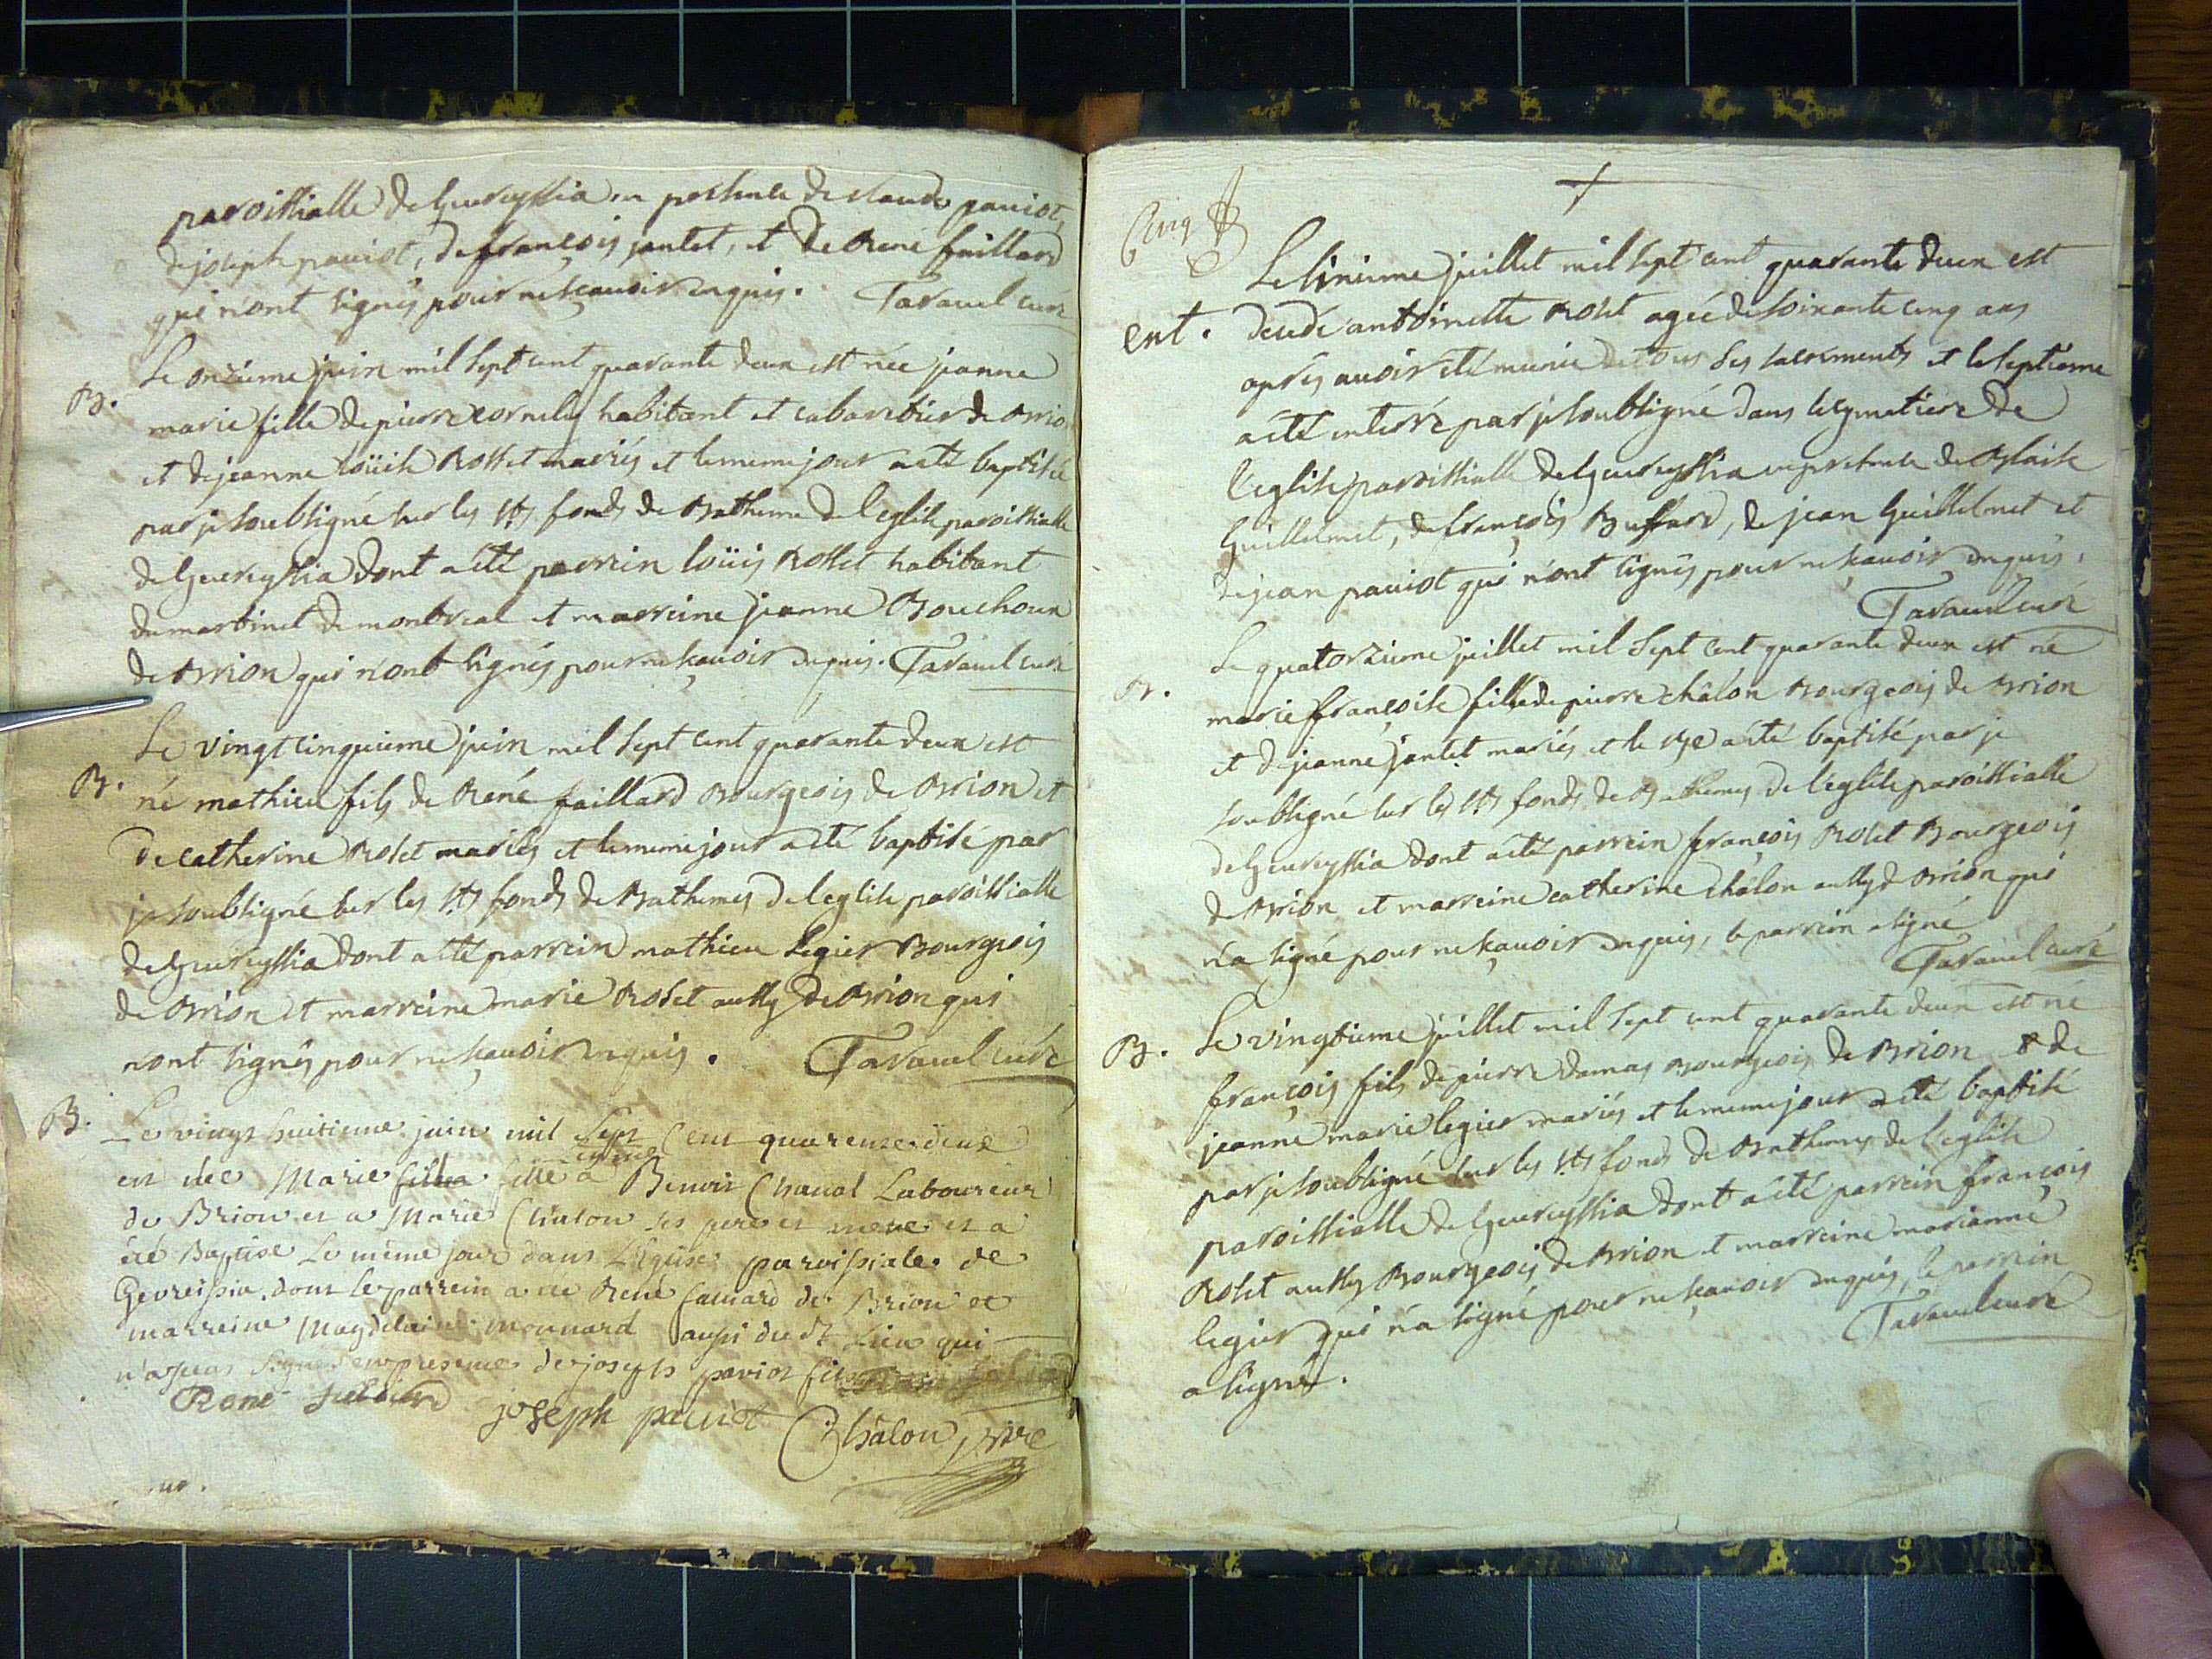 paroissialle de Geureyssia en presence de claude pauiot,
de joseph pauiot, de françois jantet, et de René faillard
qui n'ont signés pour ne sçauoir enquis. Tarauel curé
B. Le onzieme juin mil sept cent quarante deux est née jeanne
marie fille de pierre cornely habitant et cabaretier de Brion
et de jeanne loüise Rosset mariés et le meme jour a eté baptisée
par je soubsigné sur les Sts fonds de Batheme de l'eglise paroissialle
de Geureyssia dont a eté parrein loüis Rosset habitant
du martinet de montreal et marreine jeanne Bouchoux
de Brion qui n'ont signés pour ne sçauoir enquis. Tarauel curé
B. Le vingt cinquieme juin mil sept cent quarante deux est
né mathieu fils de René faillard Bourgeois de Brion et
de catherine Roset mariés et le meme jour a eté baptisé par
je soubsigné sur les Sts fonds de Bathemes de l'eglise paroissialle
de Geureyssia dont a eté parrein mathieu legier Bourgeois
de Brion et marreine marie Roset aussy de Brion qui
n'ont signés pour ne sçauoir enquis. Tarauel curé
B. Le vingt huitieme juin mil sept cent quarente deux
est née Marie fille a Benoit Chanal Laboureur
de Brion et a Marie Chalon ses pere et mere et a
été Baptise Le même jour dans L'Eglise paroissiale de
Gevreissia dont le parrein a été René faillard de Brion et
marreine Magdelaine monnard aussi dudt Lieu qui
en presence de joseph paviot
René joseph pauiot Châlon ptre
Cinq
Le sixieme juillet mil sept cent quarante deux est
ent. decedé antoinette Roset agée de soixante cinq ans
aprés auoir eté munie de tous ses sacrements et le septieme
a eté enterré par je soubsigné dans le cymetiere de
l'eglise paroissialle de Geureyssia en presence de Blaise
Guillelmet, de françois Buffard, de jean Guillelmet et
de jean pauiot qui n'ont signés pour ne sçauoir enquis,
Tarauel curé
B. Le quatorzieme juillet mil sept cent quarante deux est né
marie françoise fille de pierre châlon Bourgeois de Brion
et de jeanne jantet mariés et le a eté baptisé par je
soubsigné sur les Sts fonds de Bathemes de l'église paroissialle
de Geureyssia dont a eté parrein françois Roset Bourgeois
de Brion et marreine catherine châlon aussy de Brion qui
n'a signé pour ne sçauoir enquis, le parrein a signé
Tarauel curé
B. Le vingtieme juillet mil sept cent quarante deux est né
françois fils de pierre damas Bourgeois de Brion & de
jeanne marie legier mariés et le meme jour a eté baptisé
par je soubsigné sur les Sts fonds de Bathemes de l'eglise
paroissialle de Geureyssia dont a eté parrein françois
Roset aussy Bourgeois de Brion et marreine marianne
legier qui n'a signé pour ne sçauoir enquis, le parrein
a signé. Tarauel curé